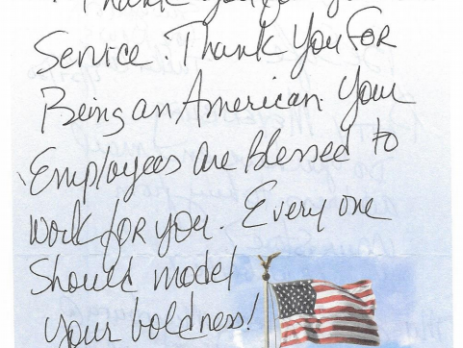 Thank you for your
Service. Thank You For
Being an American. Your
Employees are Blessed to
work for you. Every one
Should model
your boldness!